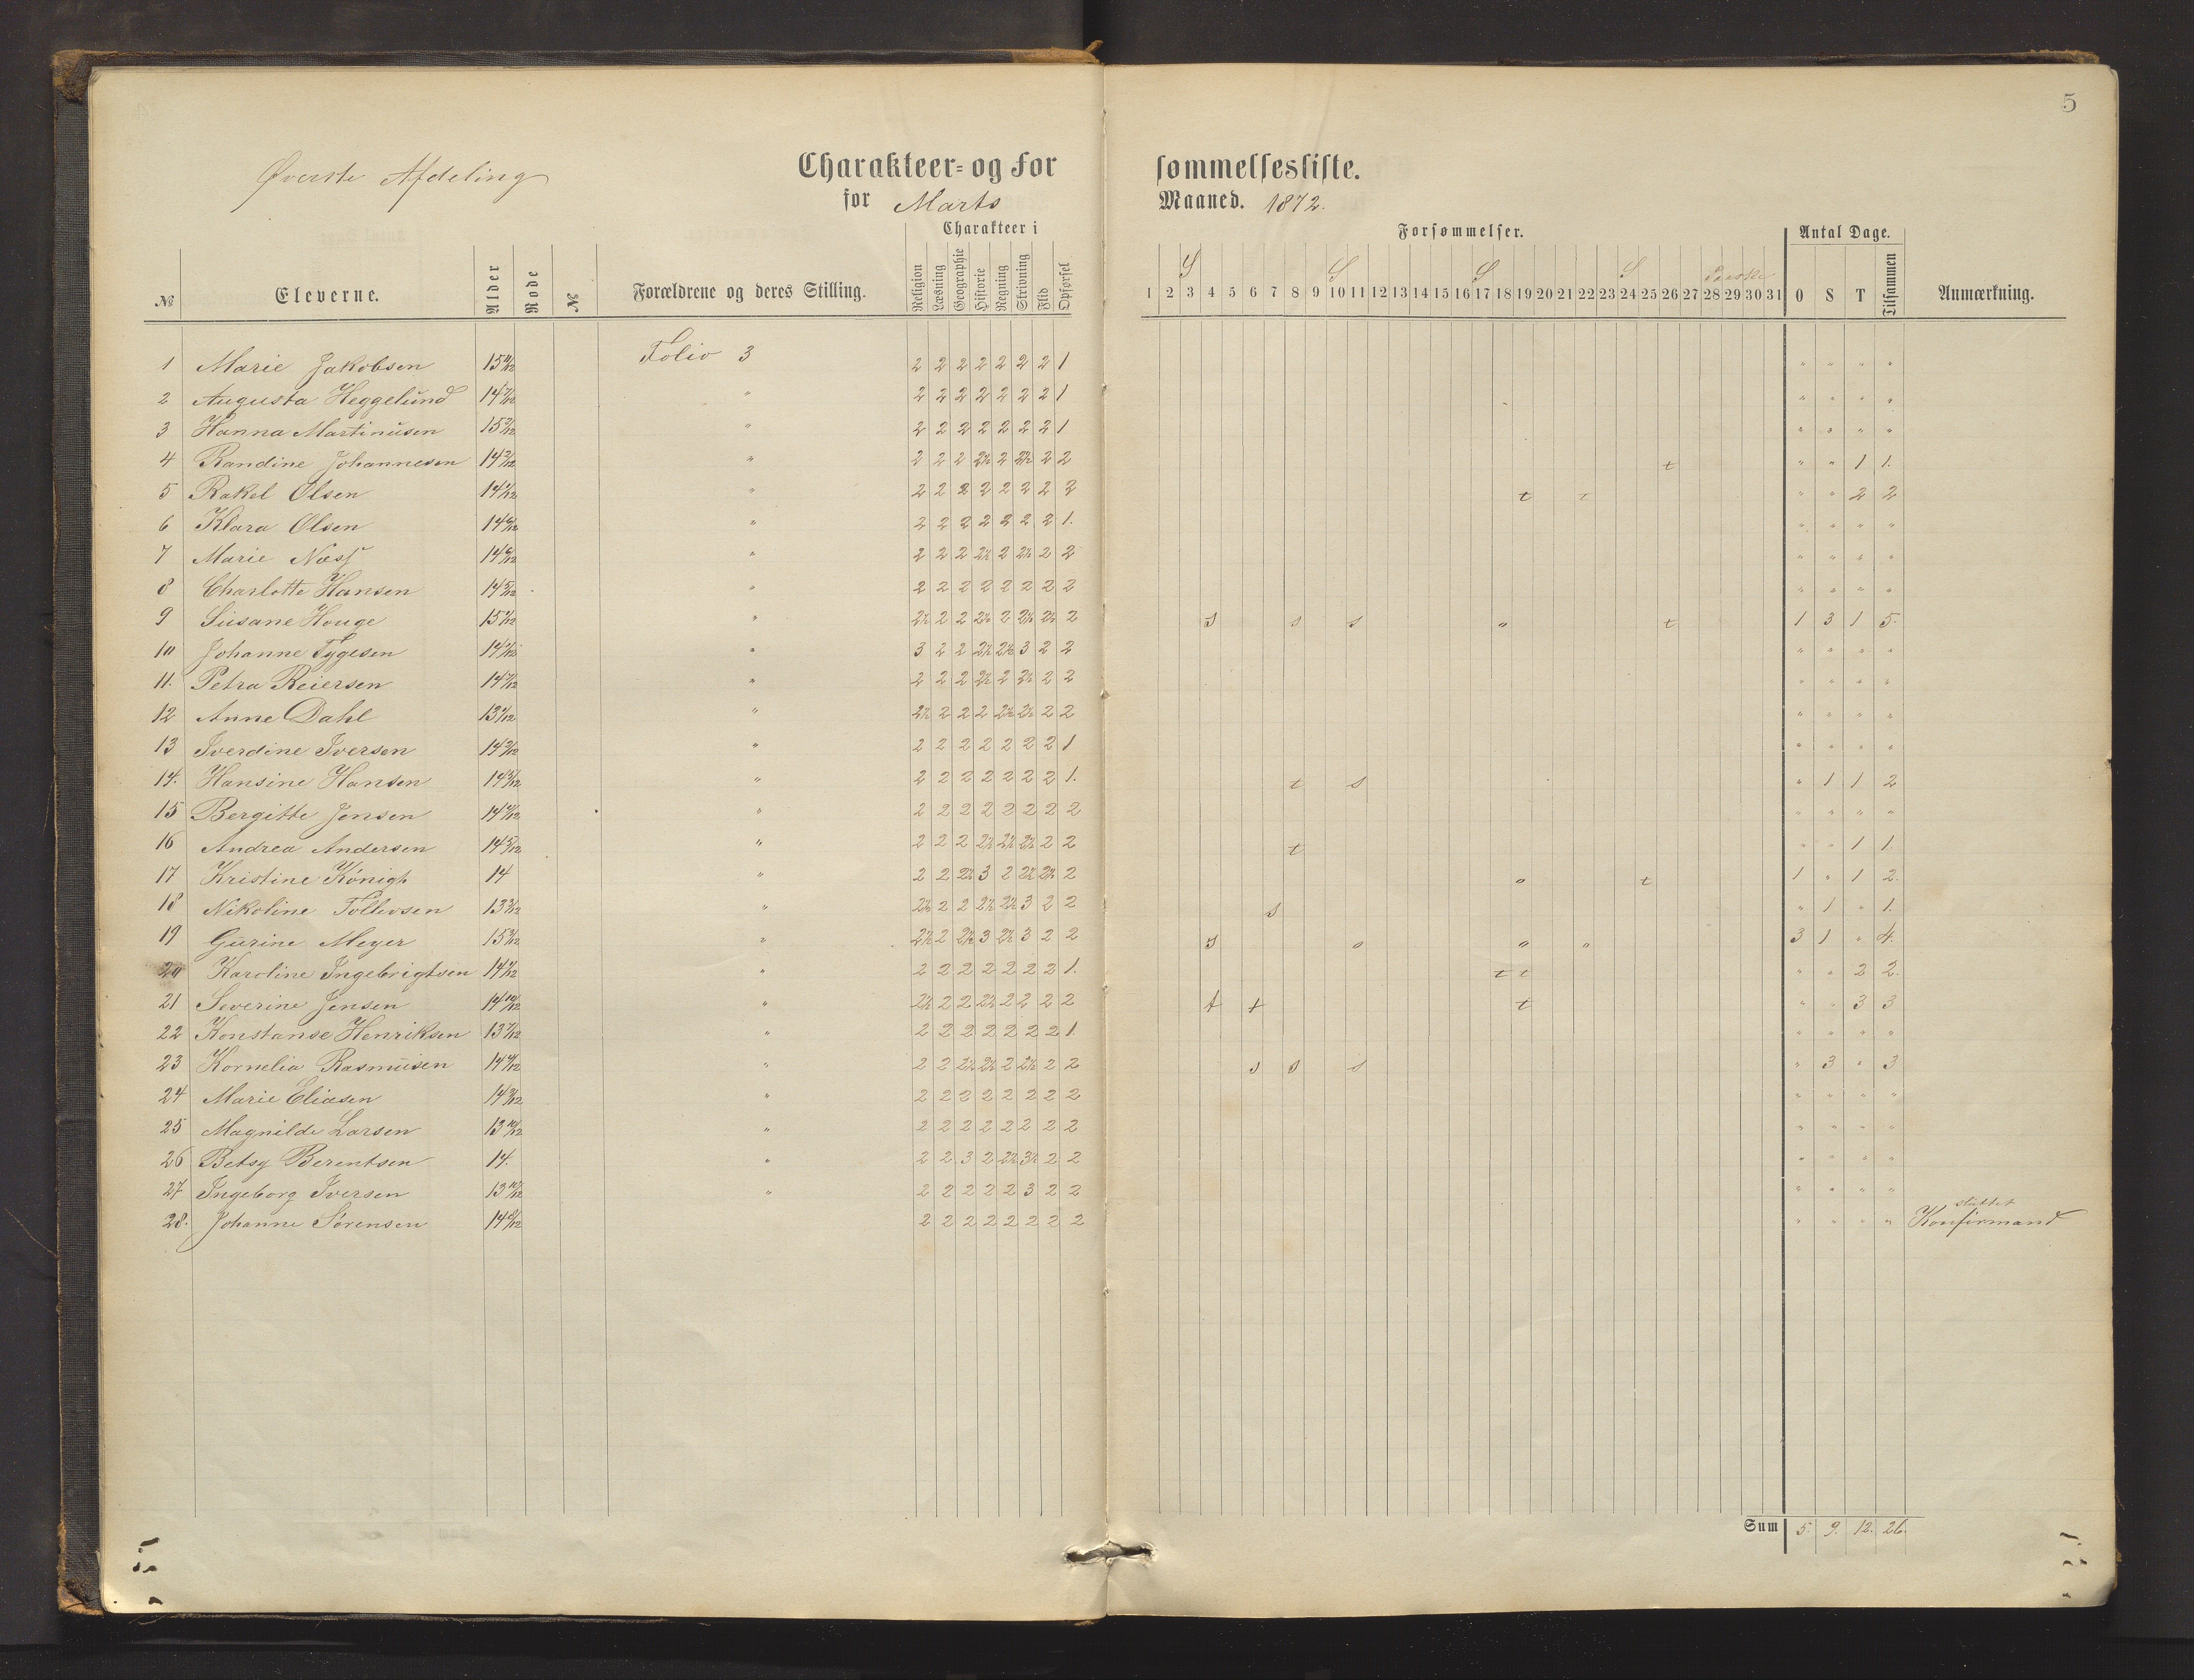 5
Øverste Afdeling
Charakteer- og Forsømmelsesliste.
for Marts Maaned. 1872.
Charakteer i Forsømmelser. Antal Dage.
S S S S Paaske
№ Eleverne. Alder Rode № Forældrene og deres Stilling. Religion Læsning Geographie Historie Regning Skrivning Flid Opførsel 1 2 3 4 5 6 7 8 9 10 11 12 13 14 15 16 17 18 19 20 21 22 23 24 25 26 27 28 29 30 31 O S T Tilsammen Anmærkning.
Folio 3
1 Marie Jakobsen 2 2 2 2 2 2 2 1 " " " "
2 Augusta Heggelund " 2 2 2 2 2 2 2 1 " " " "
3 Hanna Martinusen " 2 2 2 2 2 2 2 1 " " " "
4 Randine Johannesen " 2 2 2 2½ 2 2½ 2 2 t " " 1 1.
5 Rakel Olsen " 2 2 2 2 2 2 2 2 t t " " 2 2
6 Klara Olsen " 2 2 2 2 2 2 2 1. " " " "
7 Marie Næss " 2 2 2 2½ 2 2½ 2 2 " " " "
8 Charlotte Hansen " 2 2 2 2 2 2 2 2 " " " "
9 Susane Houge " 2½ 2 2 2½ 2 2½ 2½ 2 s s s o t 1 3 1 5.
10 Johanne Tygesen " 3 2 2 2½ 2½ 3 2 2 " " " "
11. Petra Reiersen " 2 2 2 2½ 2 2½ 2 2 " " " "
12 Anne Dahl " 2½ 2 2 2 2½ 2½ 2 2 " " " "
13 Iverdine Iversen " 2 2 2 2 2 2 2 1 " " " "
14. Hansine Hansen " 2 2 2 2 2 2 2 1. t s " 1 1 2
15 Bergitte Jensen " 2 2 2 2 2 2 2 2 " " " "
16 Andrea Andersen 14 5/12 " 2 2 2 2½ 2½ 2½ 2 2 t " " 1 1.
17 Kristine Kønigh 14 " 2 2 2½ 3 2 2½ 2½ 2 o t 1 " 1 2.
18 Nikoline Tollevsen " 2½ 2 2 2½ 2½ 3 2 2 s " 1 " 1.
19 Gurine Meyer " 2½ 2 2½ 3 2½ 3 2 2 s o o o 3 1 " 4.
20 Karoline Ingebrigtsen " 2 2 2 2 2 2 2 1. t t " " 2 2.
21 Severine Jensen 14 10/12 " 2½ 2 2 2½ 2 2 2 2 t t t " " 3 3
22 Konstanse Henriksen " 2 2 2 2 2 2 2 1. " " " "
23 Kornelia Rasmusen " 2 2 2½ 2½ 2 2½ 2 2 s s s " 3 " 3
24 Marie Eliasen " 2 2 2 2 2 2 2 2 " " " "
25 Magnilde Larsen 13 10/12 " 2 2 2 2 2 2 2 2 " " " "
26 Betsy Berentsen 14. " 2 2 3 2 2½ 3½ 2 2 " " " "
27 Ingeborg Iversen 13 10/12 " 2 2 2 2 2 3 2 2 " " " "
28. Johanne Sørensen 14 8/12 2 2 2 2 2 2 2 2 " " " " sluttet Konfirmand
Sum 5. 9. 12. 26.